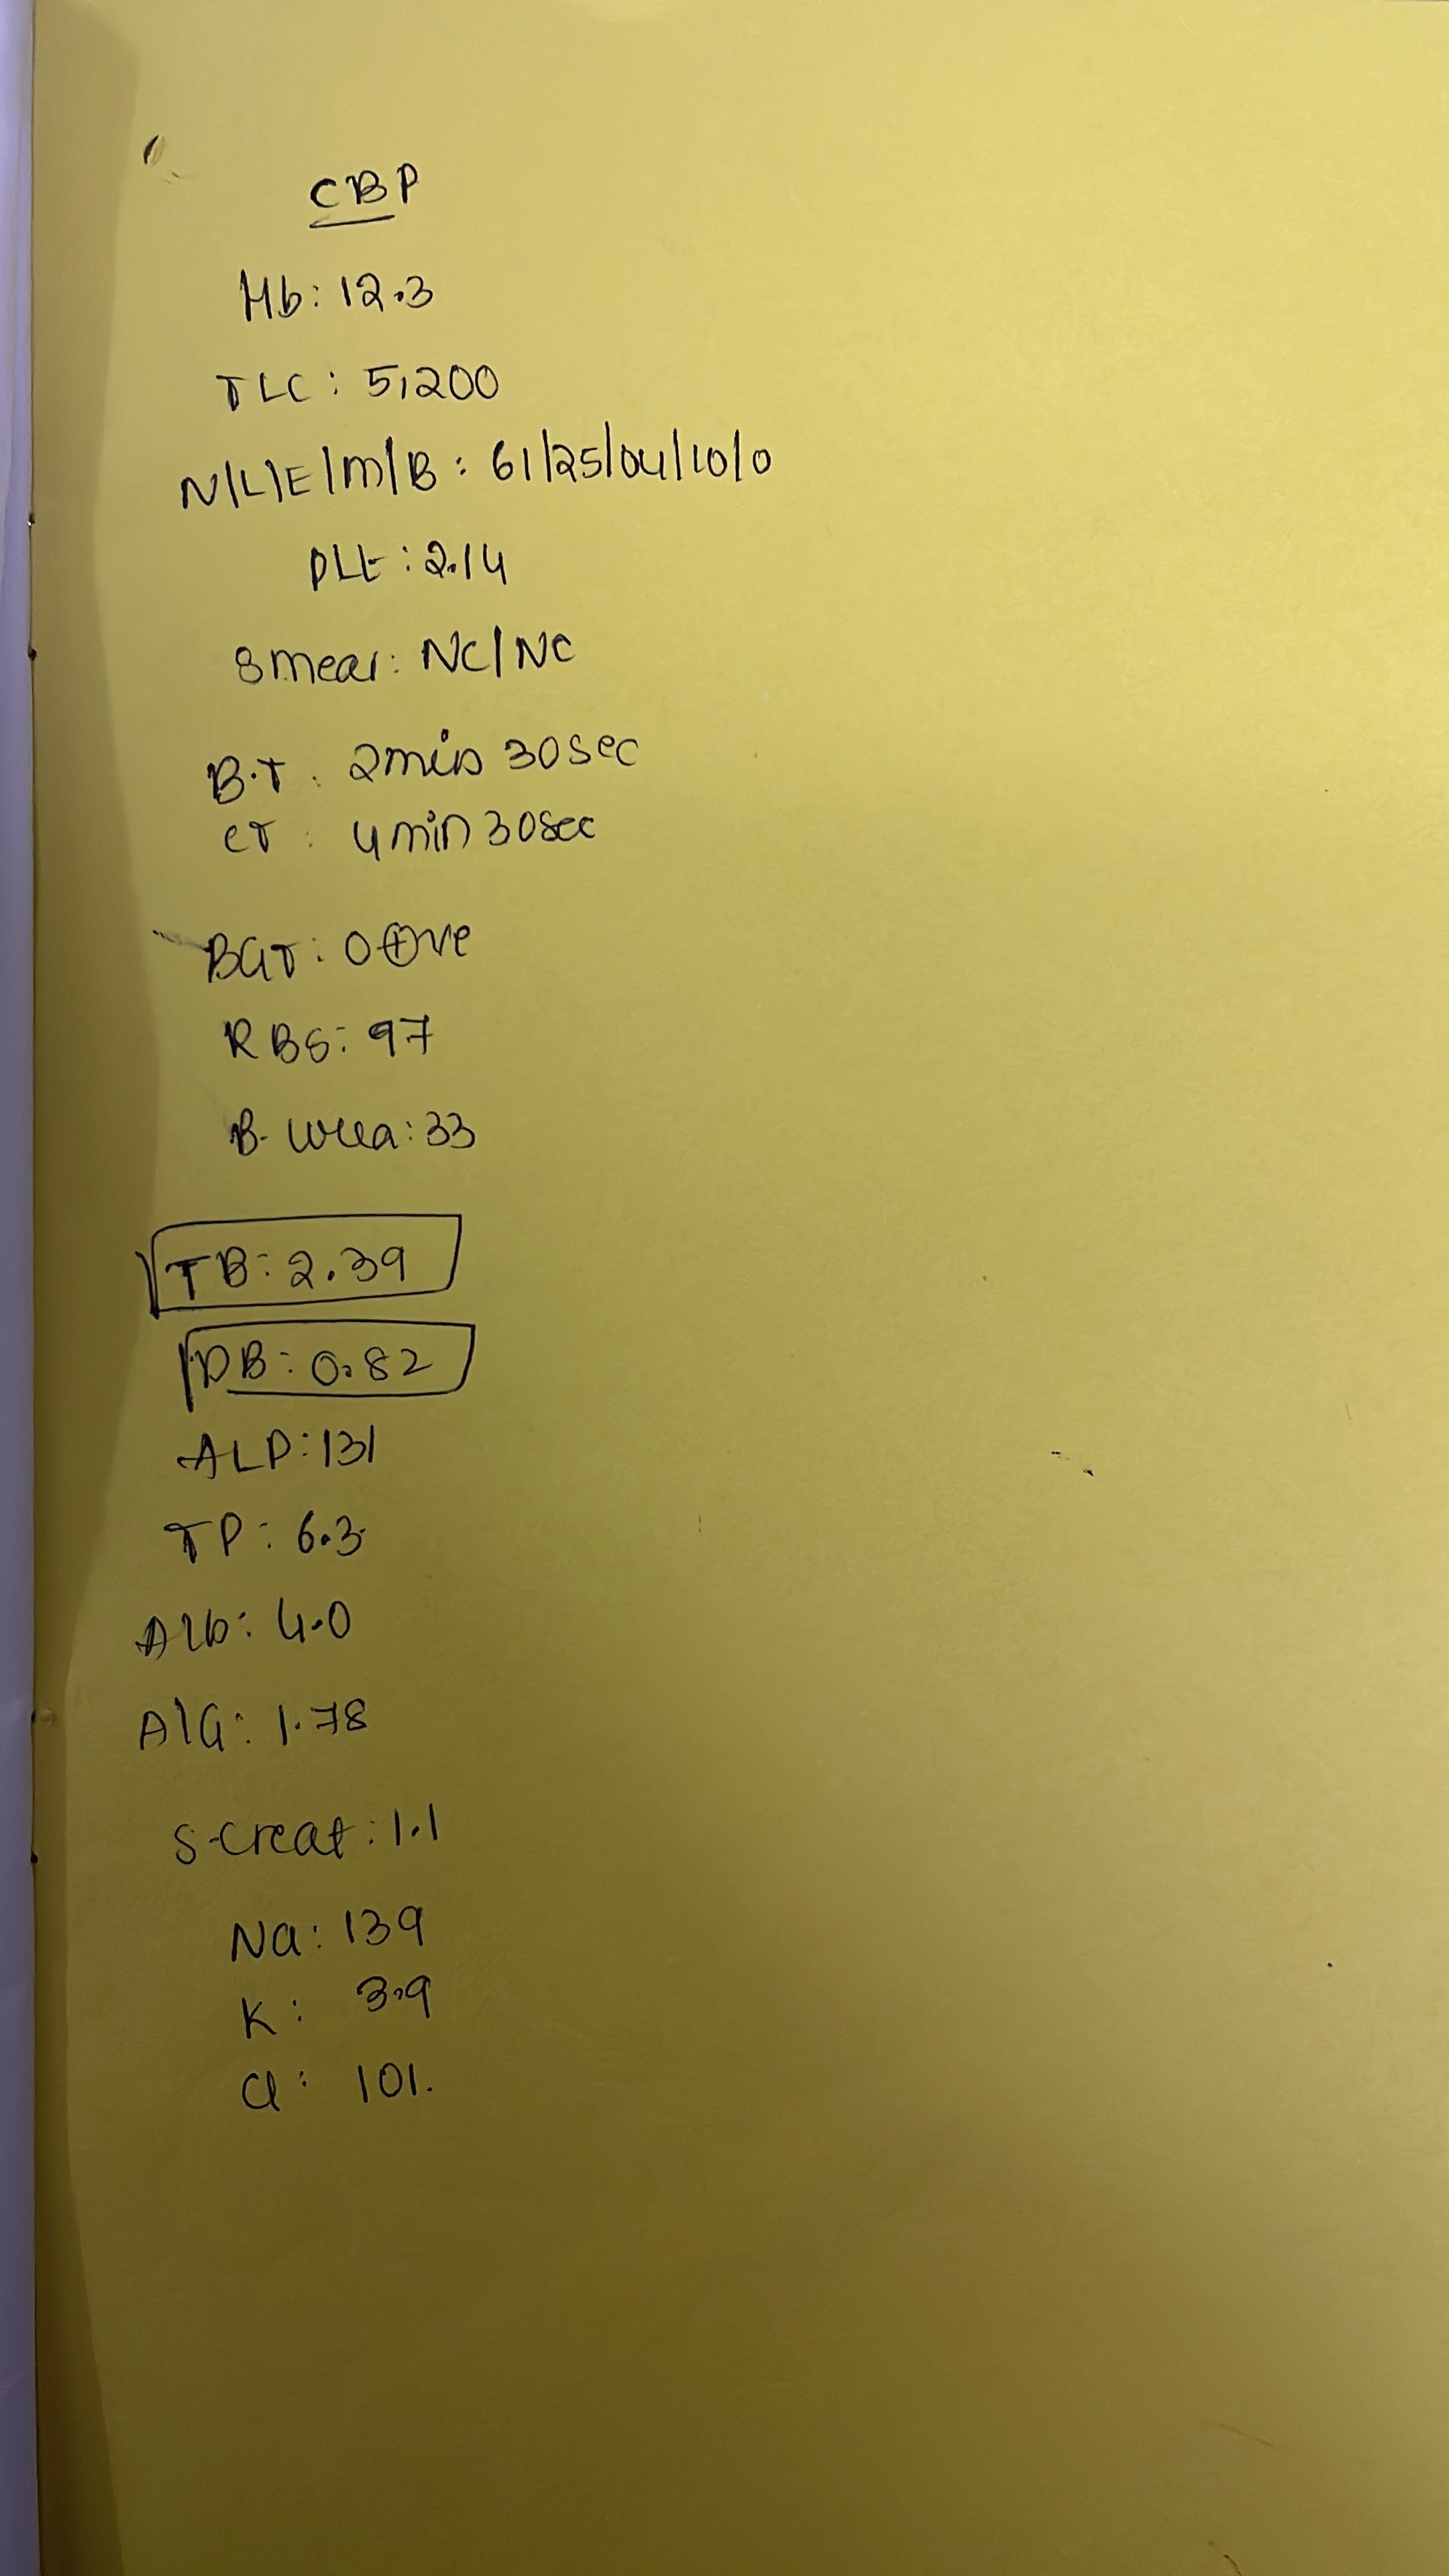 CBP
Hb: 12.3
TLC: 5,200
N/L/E/M/B: 61/25/04/10/0
PLt: 2.14
Smear: NC/NC
B.T: 2min 30sec
CT: 4min 30sec
BGT: O⊕ve
RBS: 97
B. urea: 33
TB: 2.39
DB: 0.82
ALP: 131
TP: 6.3
Alb: 4.0
A/G: 1.78
S.creat: 1.1
Na: 139
K: 3.9
Cl: 101.